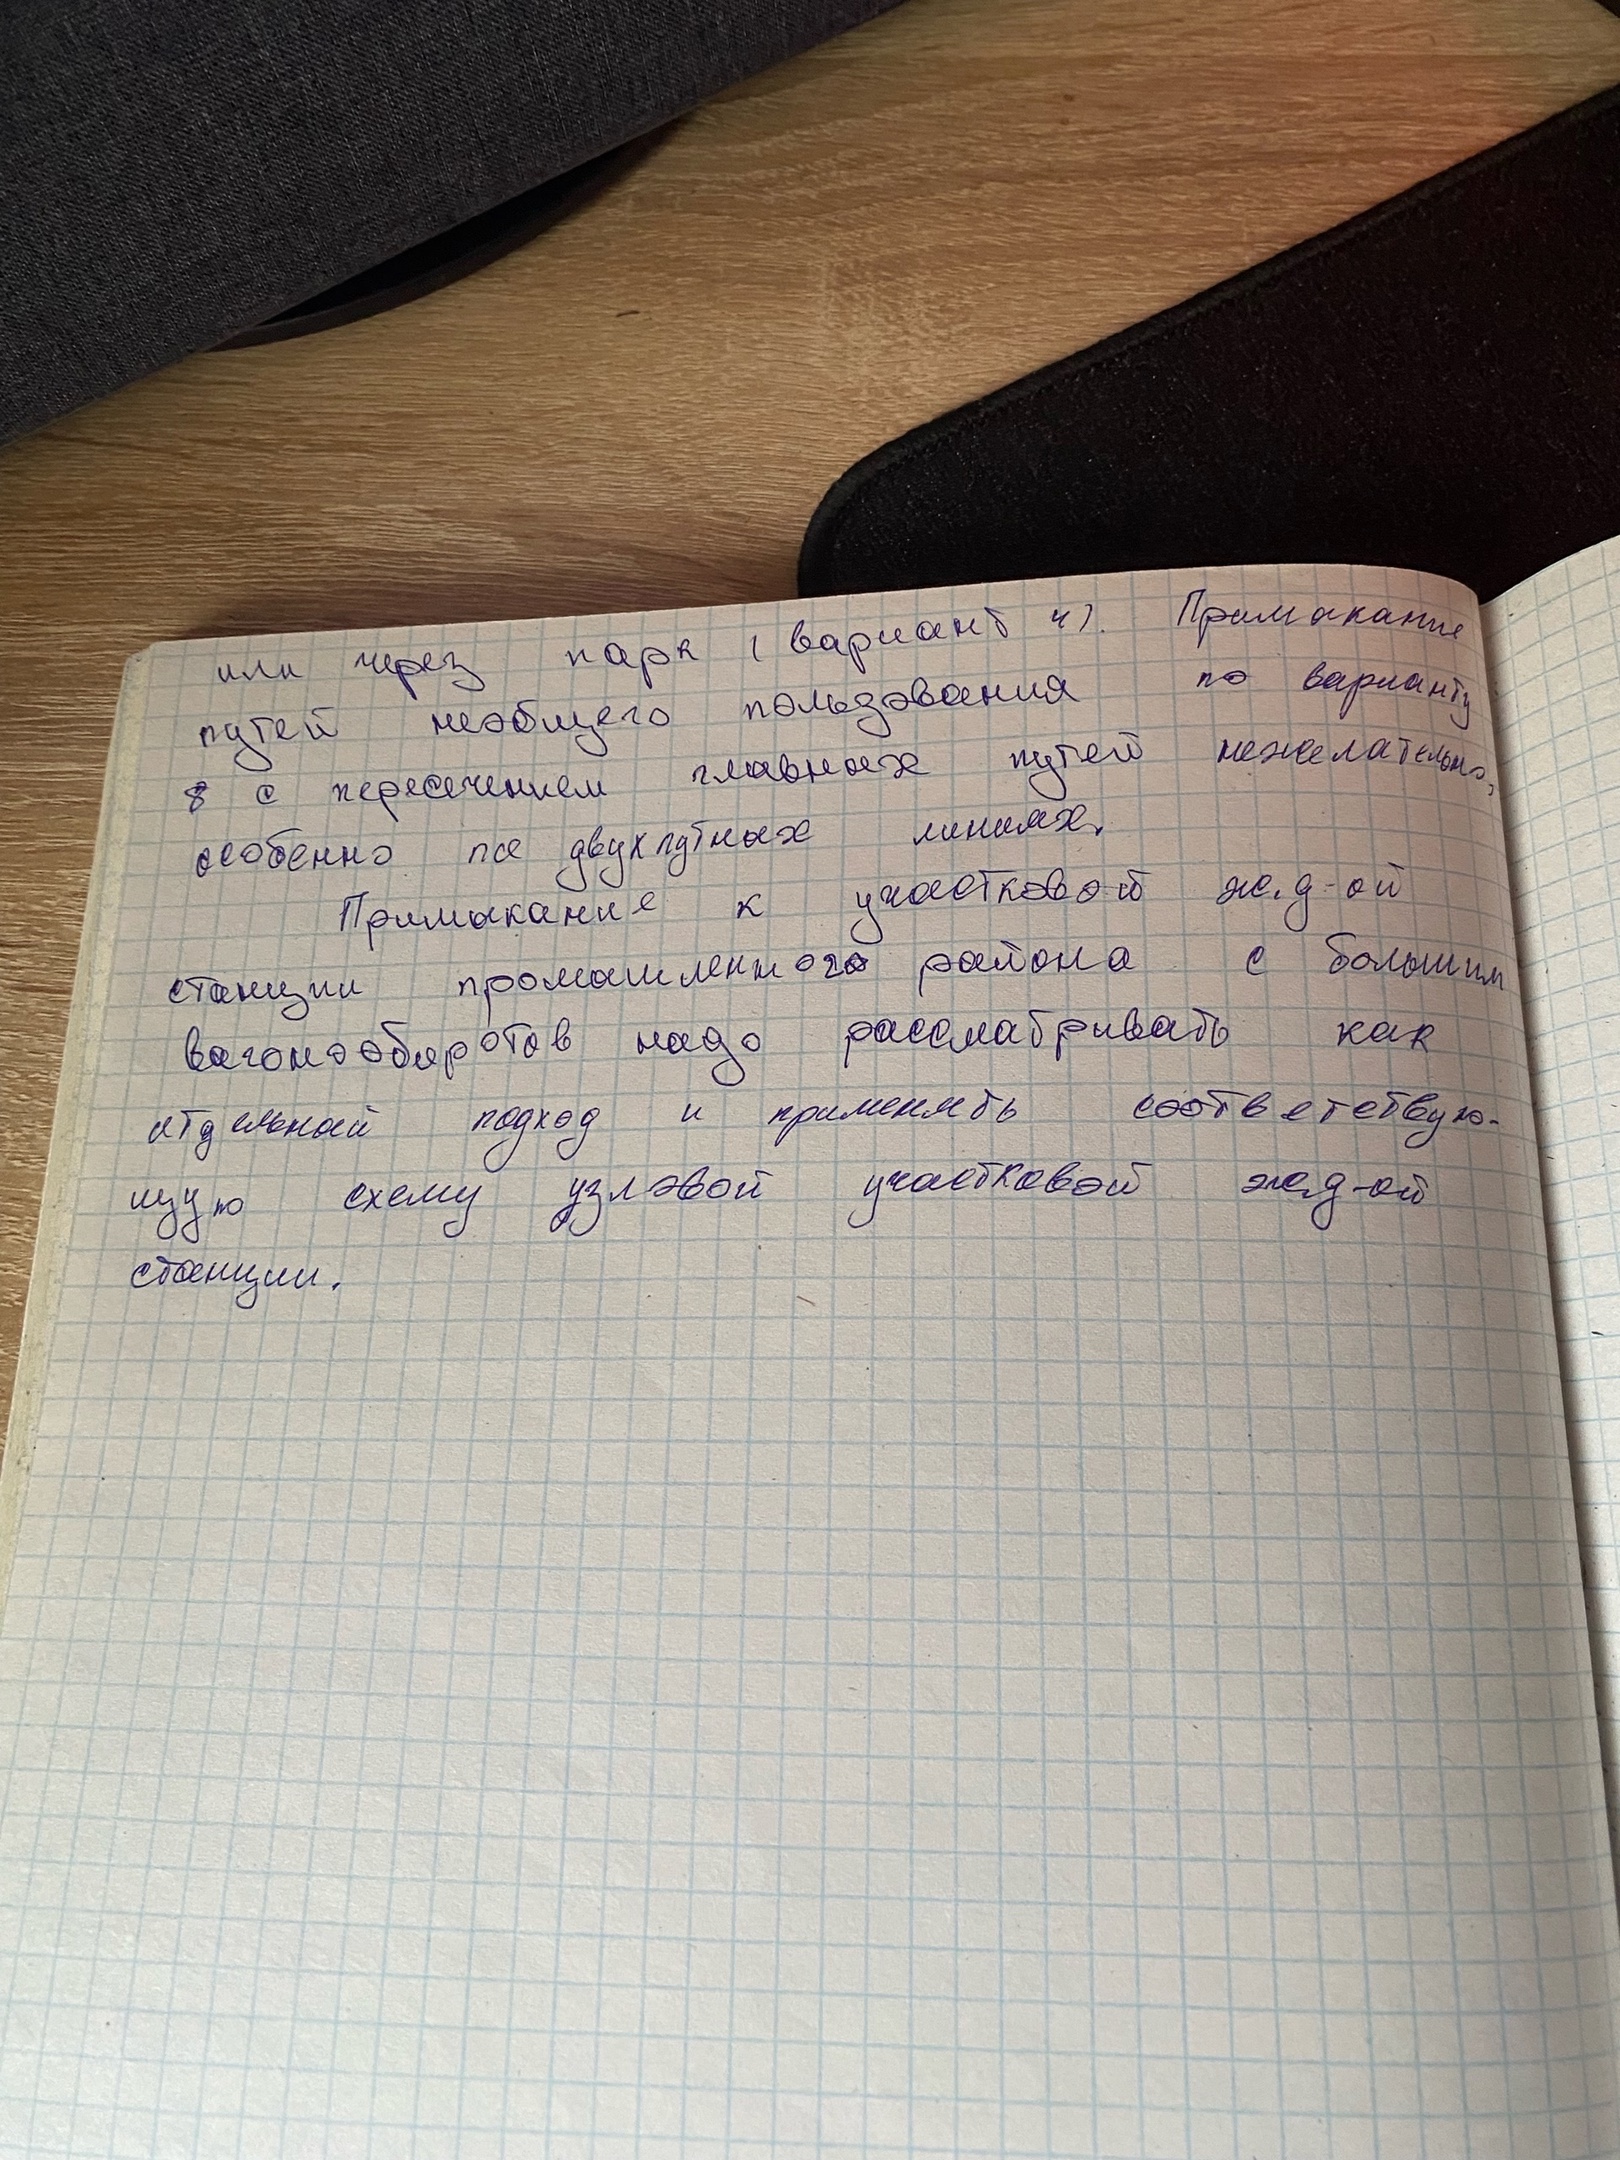 или через парк (вариант 4). Примыкание
путей необщего пользования по варианту
8 с пересечением главных путей нежелательно,
особенно на двухпутных линиях.
Примыкание к участковой ж.д-ой
станции промышленного района с большим
вагонооборотов надо рассматривать как
отдельный подход и применять соответствую-
щую схему узловой участковой ж.д-ой
станции.